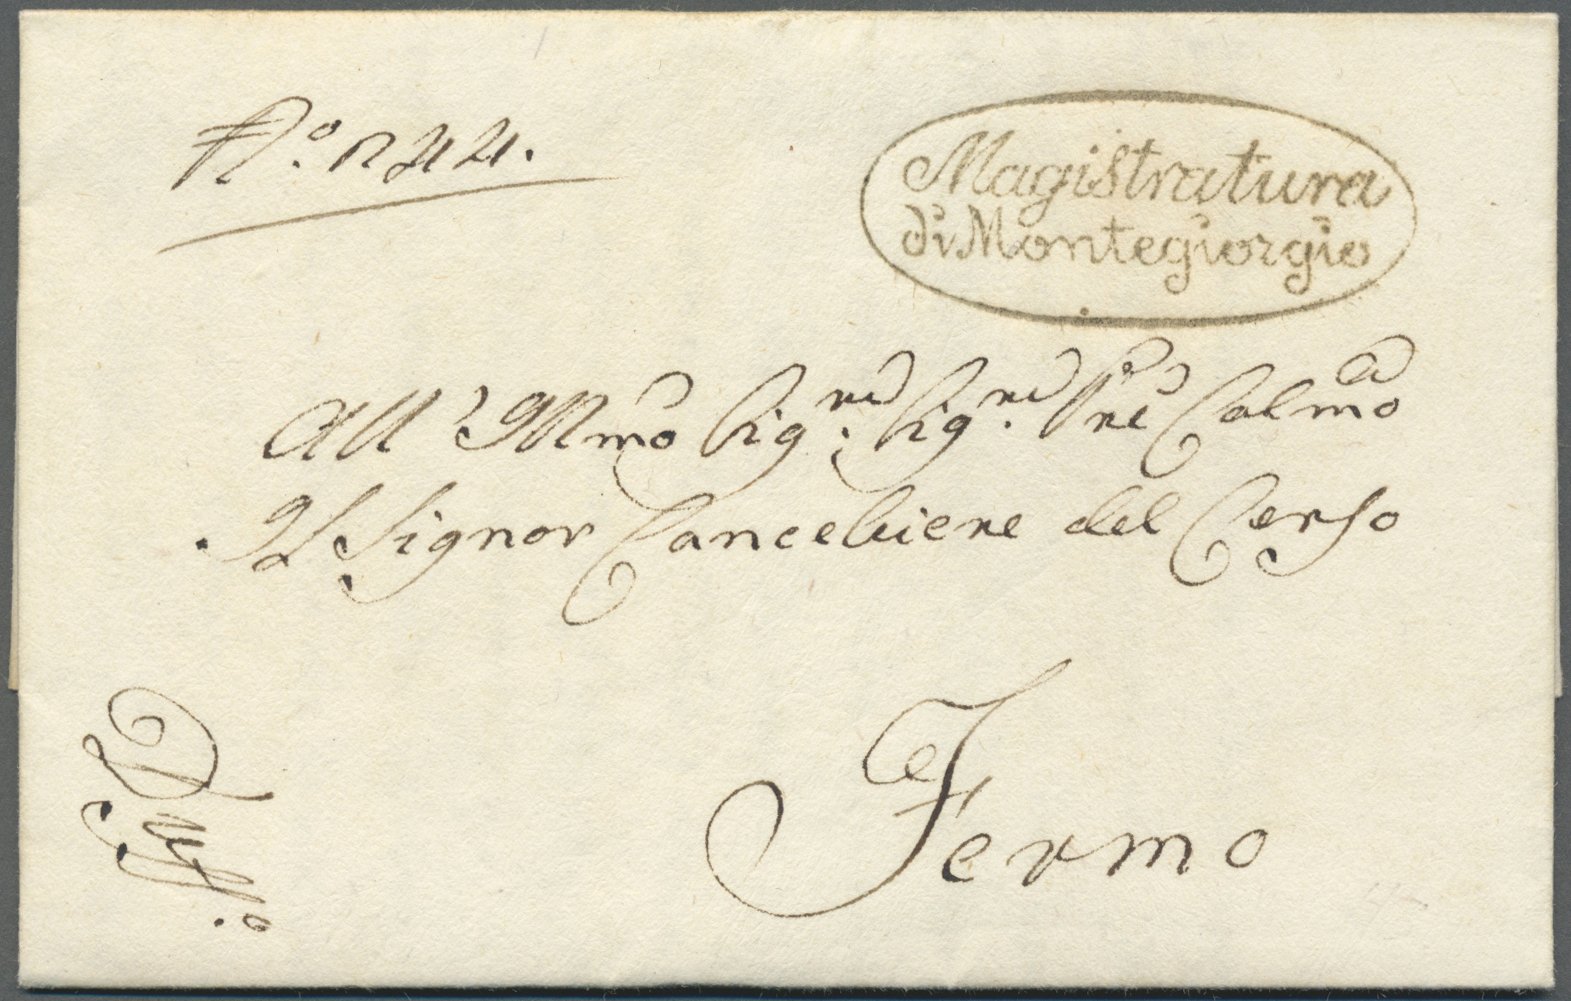 N.º 1244.
Magistratura
di Montegiorgio
All' Illmo Sig.re Sig.re Pne Colmo
Il Signor Cancelliere del Censo
Fermo
D'Uff.o